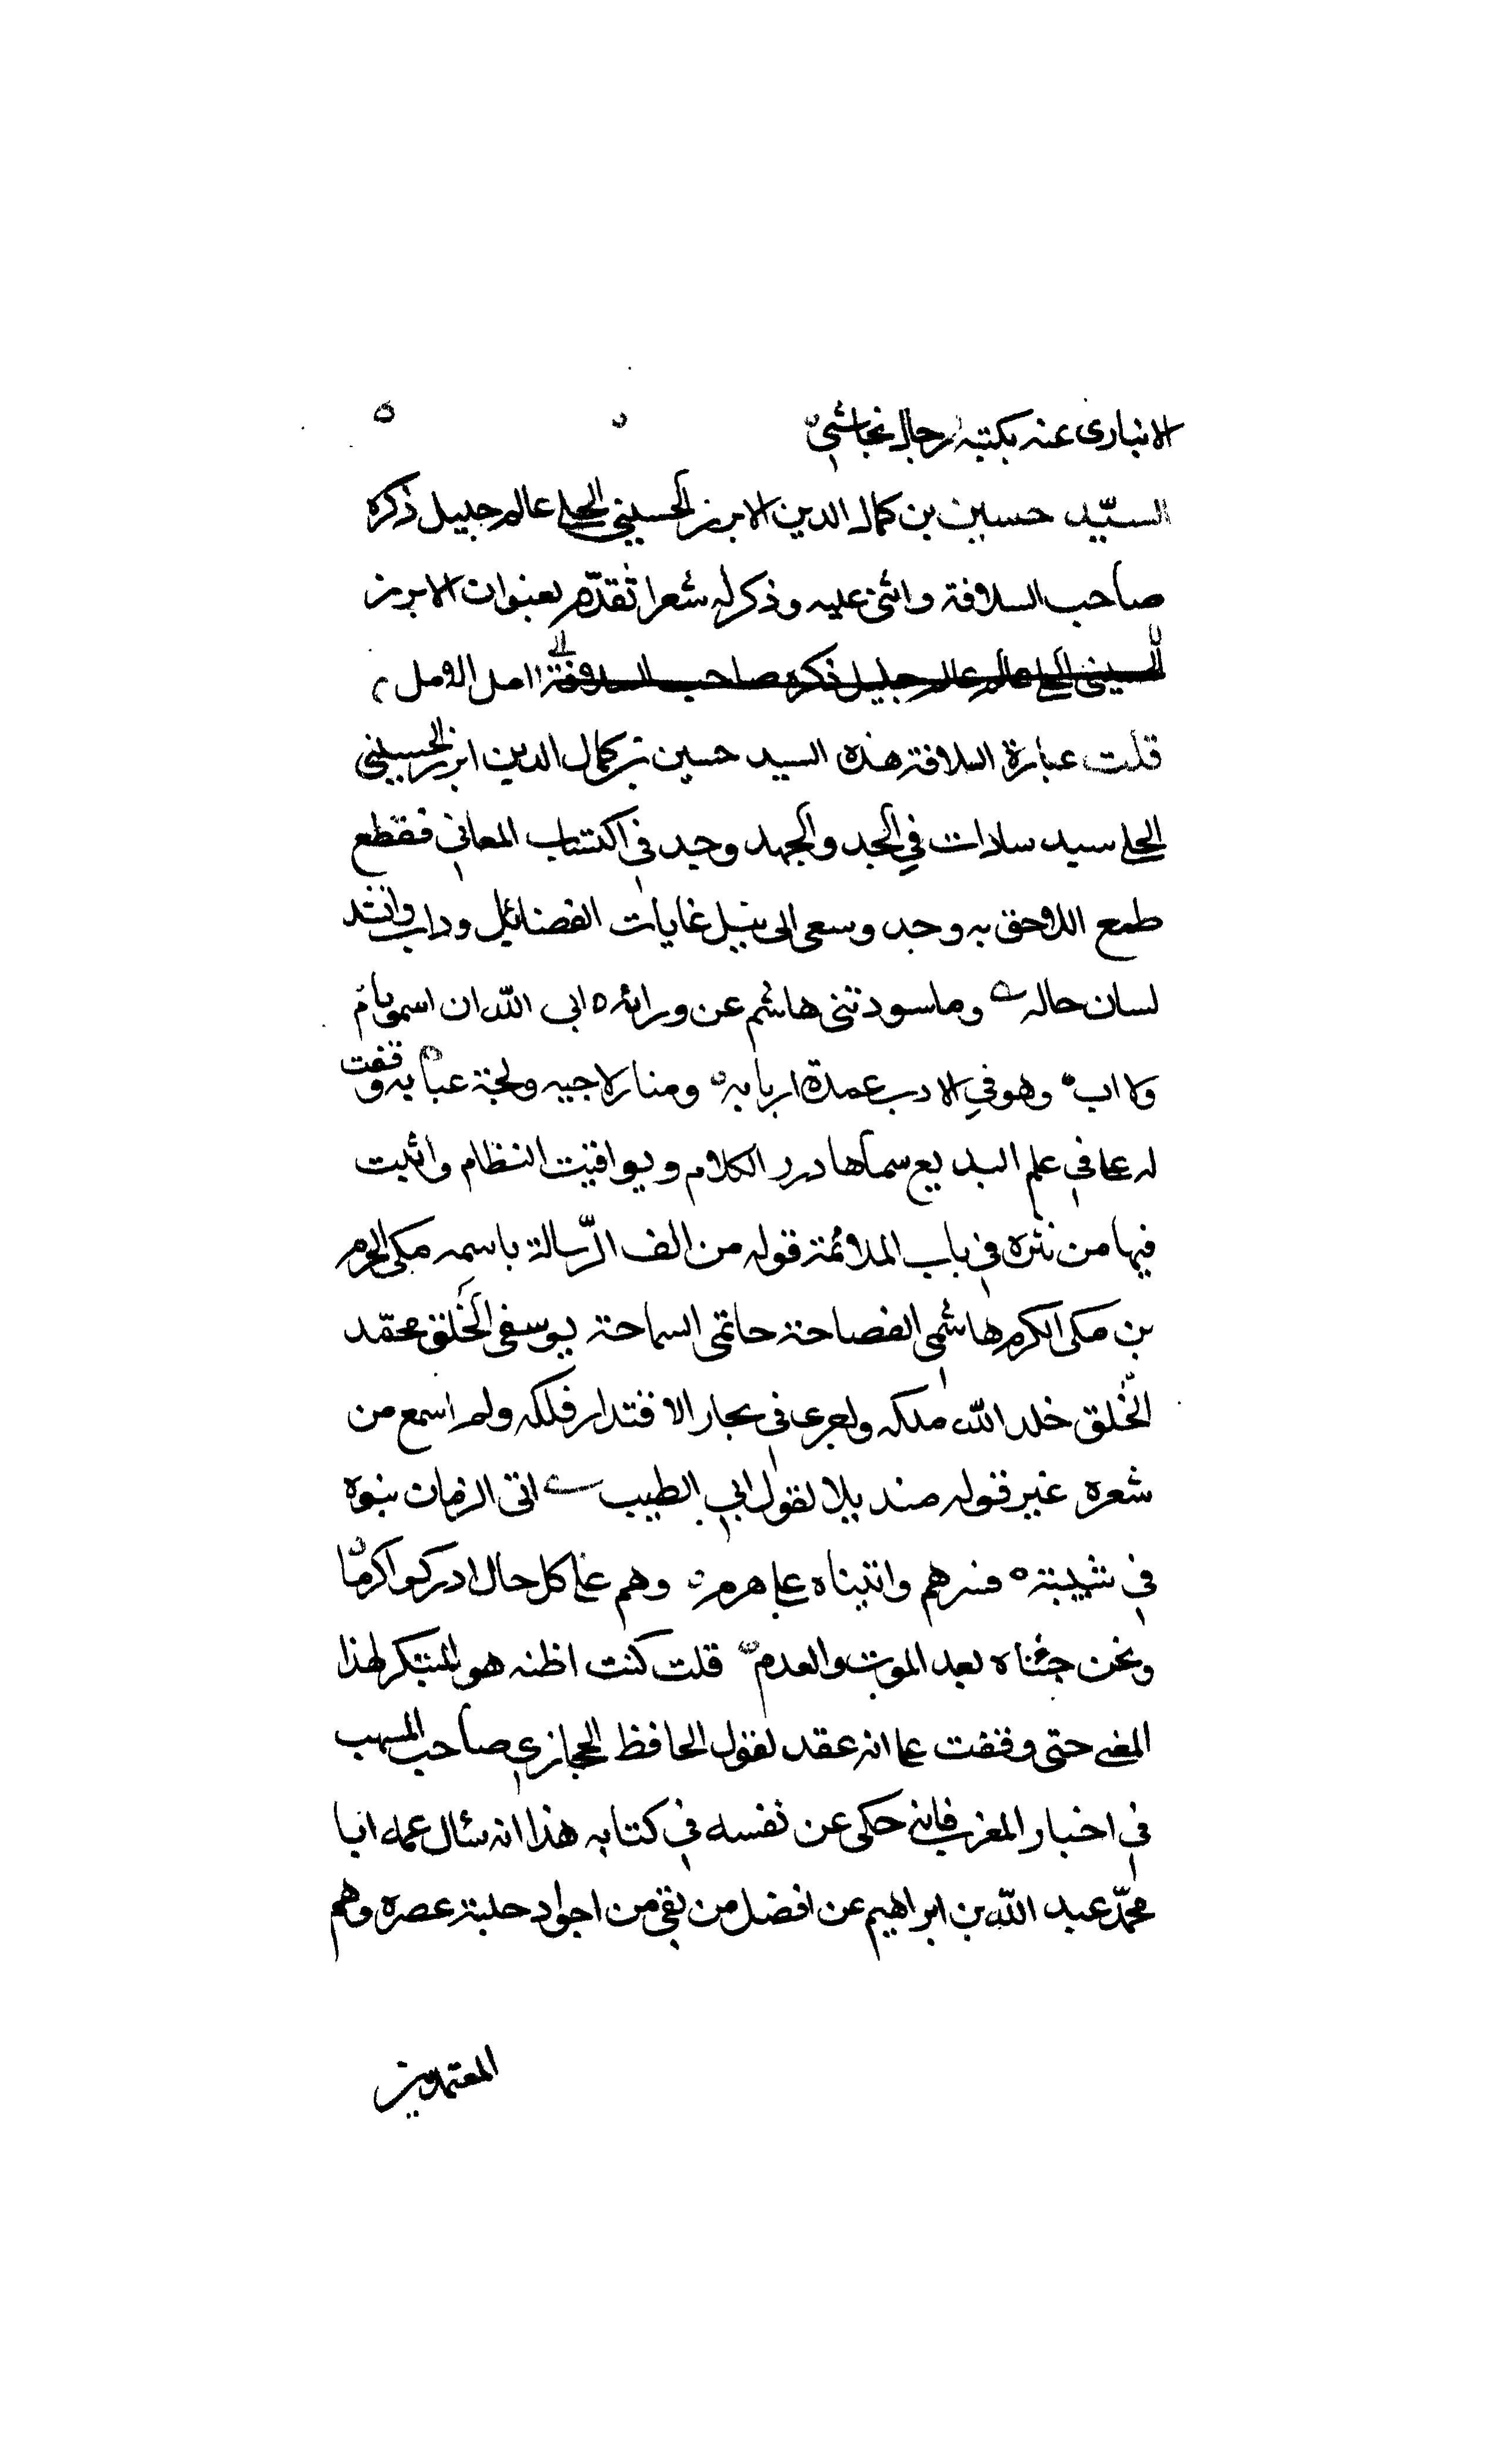 الانبارى عنه بكتبه رجال نجاشى
السيّد حسين بن كمال الدين الابرز الحسيني الحلي عالم جليل ذكره
صاحب السلافة واثنى عليه وذكر له شعرا تقدّم بعنوان الابرز
الحسيني الحلي عالم عالم جليل ذكره صاحب السلافة امل الامل
قلت عبارة السلافة هذه السيد حسين بن كمال الدين ابرز الحسيني
الحلي سيد سادات في الجد والجهد وجد في اكتساب المعاني فقطع
طمع اللاحق به وجد وسعى الى نيل غايات الفضائل وداب وانشد
لسان حاله وما سودتني هاشم عن وراثة ابى الله ان اسمو بام
ولا اب وهو في الادب عمدة اربابه ومنار لاجيه ولجة عبابه وقفت
له على في علم البديع سماها درر الكلام ويواقيت النظام واثبت
فيها من نثره في باب الملائمة قوله من الف الرّسالة باسمه مكى الحرم
بن مكى الكرم هاشمى الفصاحة حاتمى السماحة يوسفى الخَلق محمّد
الخُلق خلد الله ملكه ولجرى في بحار الاقتدار فلكه ولم اسمع من
شعره غير قوله مذيلا لقول ابي الطيب اتى الزمان بنوه
في شبيبته فسرهم واتيناه على هرم وهم على كل حال ادركوا كرما
ونحن جئناه بعد الموت والعدم قلت كنت اظنه هو المبتكر لهذا
المعنى حتى وقفت على انه عقد لقول الحافظ الحجازي صاحب المسهب
في اخبار المغرب فانى حكى عن نفسه في كتابه هذا انه سئال عمه ابا
محمّد عبد الله بن ابراهيم عن افضل من بقى من اجواد حلبة عصره وهم